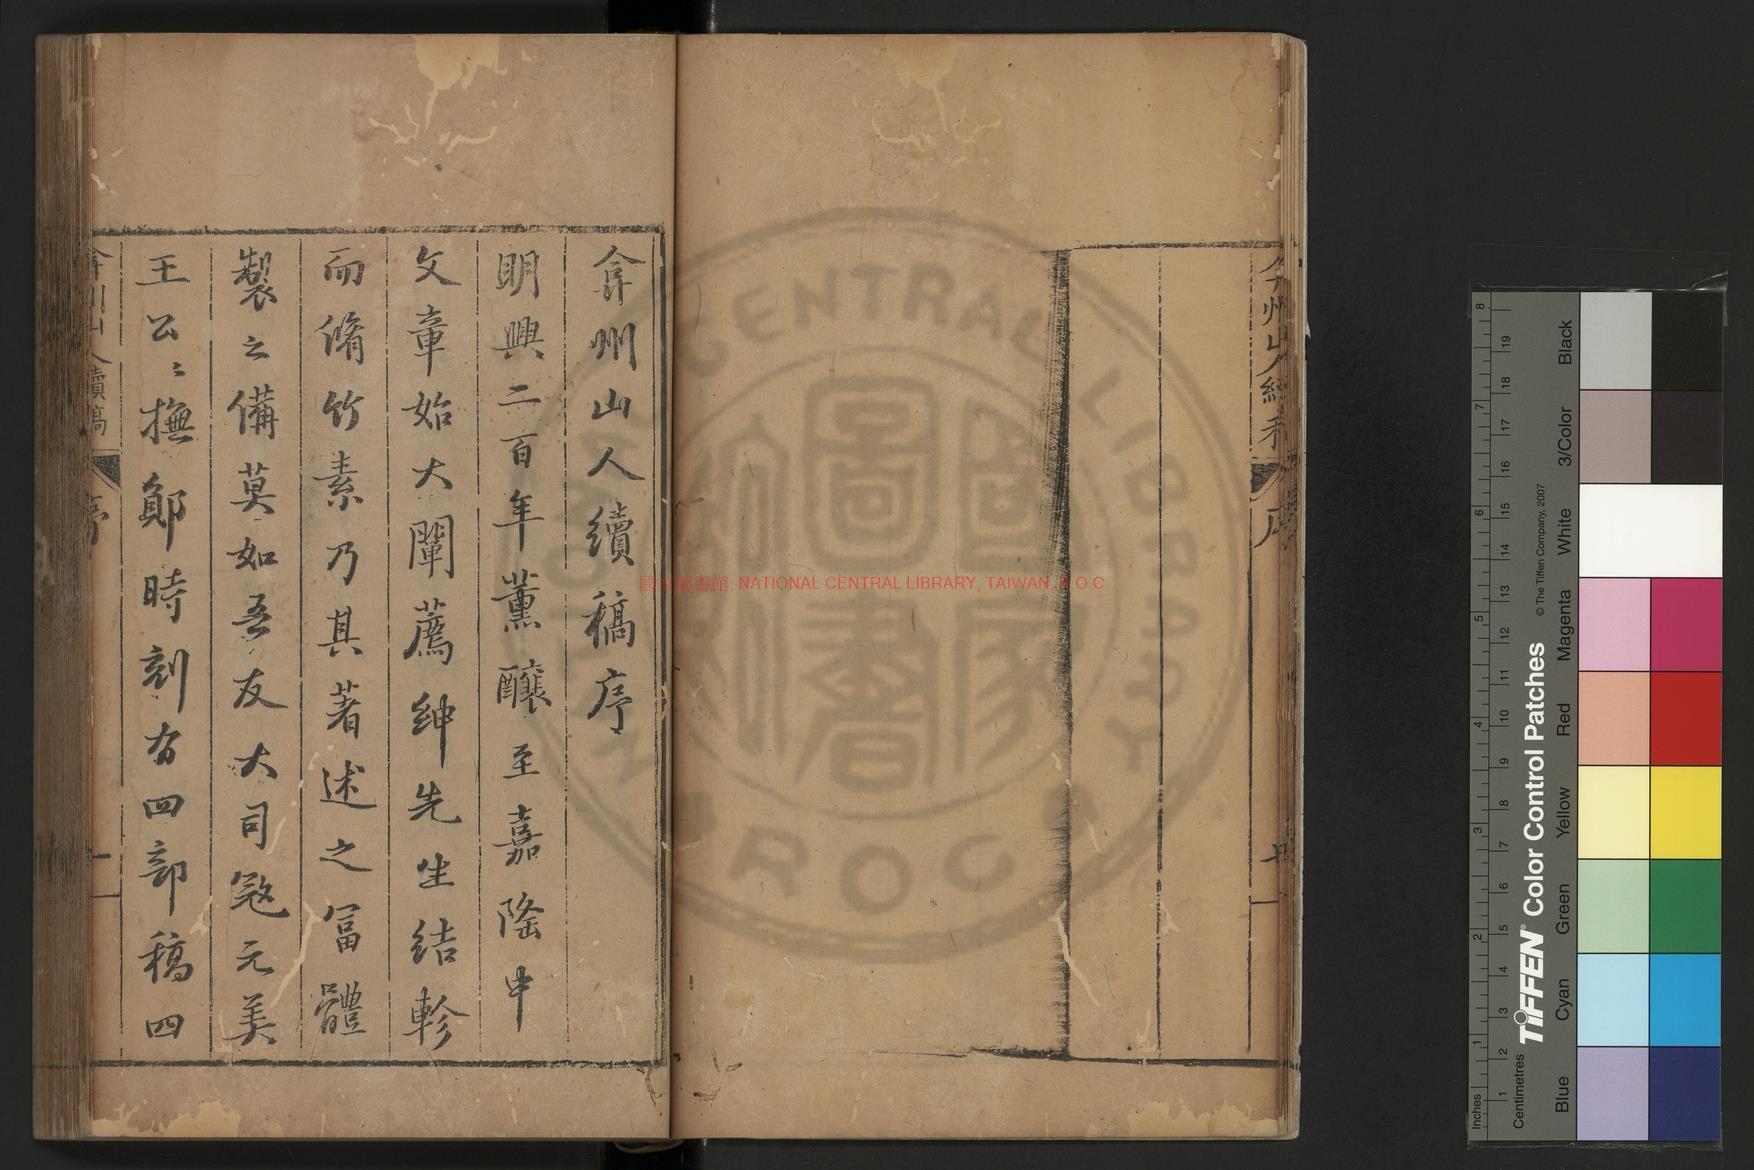 弇州山人續稿序
明興二百年薰釀至嘉隆中
文章始大闡薦紳先生結軫
而脩竹素乃其著述之富體
製之備莫如吾友大司寇元美
王公〻撫鄖時刻有四部稿四
弇州山人續稿
序
一
弇州山人續稿
序
CENTRAL LIBRARY
R O C
國家圖書館
國家圖書館, NATIONAL CENTRAL LIBRARY, TAIWAN, R.O.C
Inches
Centimetres
1 2 3 4 5 6 7 8
1 2 3 4 5 6 7 8 9 10 11 12 13 14 15 16 17 18 19
TIFFEN® Color Control Patches
© The Tiffen Company, 2007
Blue
Cyan
Green
Yellow
Red
Magenta
White
3/Color
Black